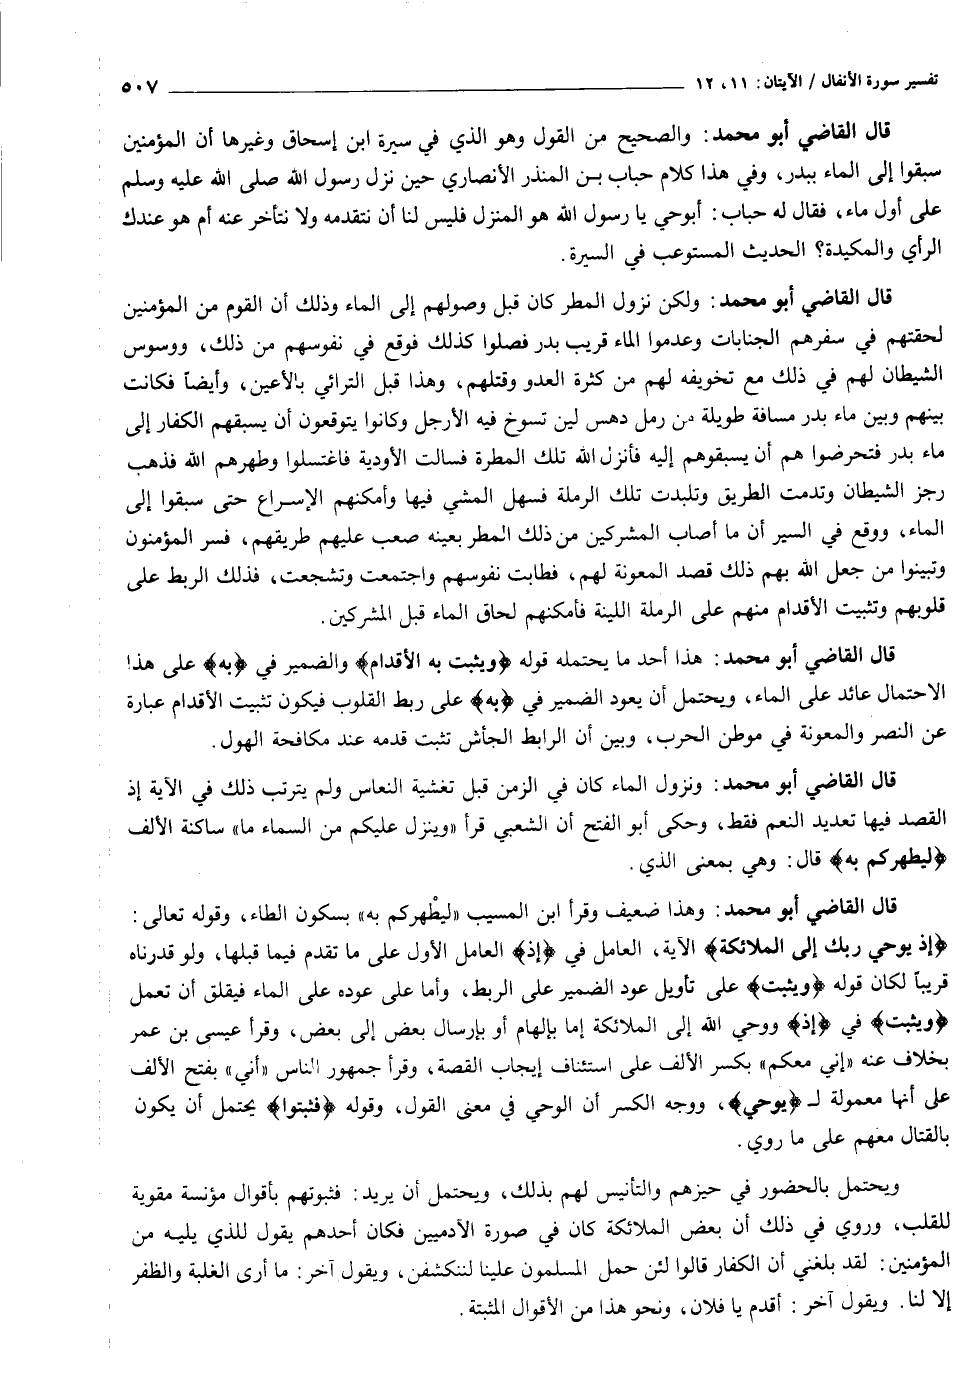 تفسير سورة الأنفال / الآيتان: ١١، ١٢ ٥٠٧
قال القاضي أبو محمد: والصحيح من القول وهو الذي في سيرة ابن إسحاق وغيرها أن المؤمنين
سبقوا إلى الماء ببدر، وفي هذا كلام حباب بن المنذر الأنصاري حين نزل رسول الله صلى الله عليه وسلم
على أول ماء، فقال له حباب: أبوحي يا رسول الله هو المنزل فليس لنا أن نتقدمه ولا نتأخر عنه أم هو عندك
الرأي والمكيدة؟ الحديث المستوعب في السيرة.
قال القاضي أبو محمد: ولكن نزول المطر كان قبل وصولهم إلى الماء وذلك أن القوم من المؤمنين
لحقتهم في سفرهم الجنابات وعدموا الماء قريب بدر فصلوا كذلك فوقع في نفوسهم من ذلك، ووسوس
الشيطان لهم في ذلك مع تخويفه لهم من كثرة العدو وقتلهم، وهذا قبل الترائي بالأعين، وأيضاً فكانت
بينهم وبين ماء بدر مسافة طويلة من رمل دهس لين تسوخ فيه الأرجل وكانوا يتوقعون أن يسبقهم الكفار إلى
ماء بدر فتحرضوا هم أن يسبقوهم إليه فأنزل الله تلك المطرة فسالت الأودية فاغتسلوا وطهرهم الله فذهب
رجز الشيطان وتدمت الطريق وتلبدت تلك الرملة فسهل المشي فيها وأمكنهم الإسراع حتى سبقوا إلى
الماء، ووقع في السير أن ما أصاب المشركين من ذلك المطر بعينه صعب عليهم طريقهم، فسر المؤمنون
وتبينوا من جعل الله بهم ذلك قصد المعونة لهم، فطابت نفوسهم واجتمعت وتشجعت، فذلك الربط على
قلوبهم وتثبيت الأقدام منهم على الرملة اللينة فأمكنهم لحاق الماء قبل المشركين.
قال القاضي أبو محمد: هذا أحد ما يحتمله قوله ﴿ويثبت به الأقدام﴾ والضمير في ﴿به﴾ على هذا
الاحتمال عائد على الماء، ويحتمل أن يعود الضمير في ﴿به﴾ على ربط القلوب فيكون تثبيت الأقدام عبارة
عن النصر والمعونة في موطن الحرب، وبين أن الرابط الجأش تثبت قدمه عند مكافحة الهول.
قال القاضي أبو محمد: ونزول الماء كان في الزمن قبل تغشية النعاس ولم يترتب ذلك في الآية إذ
القصد فيها تعديد النعم فقط، وحكى أبو الفتح أن الشعبي قرأ «وينزل عليكم من السماء ما» ساكنة الألف
﴿ليطهركم به﴾ قال: وهي بمعنى الذي.
قال القاضي أبو محمد: وهذا ضعيف وقرأ ابن المسيب «ليطْهركم به» بسكون الطاء، وقوله تعالى:
﴿إذ يوحي ربك إلى الملائكة﴾ الآية، العامل في ﴿إذ﴾ العامل الأول على ما تقدم فيما قبلها، ولو قدرناه
قريباً لكان قوله ﴿ويثبت﴾ على تأويل عود الضمير على الربط، وأما على عوده على الماء فيقلق أن تعمل
﴿ويثبت﴾ في ﴿إذ﴾ ووحي الله إلى الملائكة إما بإلهام أو بإرسال بعض إلى بعض، وقرأ عيسى بن عمر
بخلاف عنه «إني معكم» بكسر الألف على استئناف إيجاب القصة، وقرأ جمهور الناس «أني» بفتح الألف
على أنها معمولة لـ ﴿يوحي﴾، ووجه الكسر أن الوحي في معنى القول، وقوله ﴿فثبتوا﴾ يحتمل أن يكون
بالقتال معهم على ما روي.
ويحتمل بالحضور في حيزهم والتأنيس لهم بذلك، ويحتمل أن يريد: فثبوتهم بأقوال مؤنسة مقوية
للقلب، وروي في ذلك أن بعض الملائكة كان في صورة الآدميين فكان أحدهم يقول للذي يليه من
المؤمنين: لقد بلغني أن الكفار قالوا لئن حمل المسلمون علينا لننكشفن، ويقول آخر: ما أرى الغلبة والظفر
إلا لنا. ويقول آخر: أقدم يا فلان، ونحو هذا من الأقوال المثبتة.